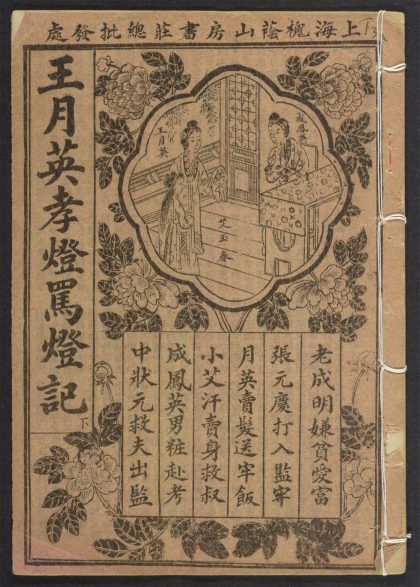 上海槐蔭山房書莊總批發處
王月英孝燈罵燈記
下
王月英
艾玉春
老成明嫌貧愛富
張元慶打入監牢
月英賣髮送牢飯
小艾汗賣身救叔
成鳳英男粧赴考
中狀元救夫出監